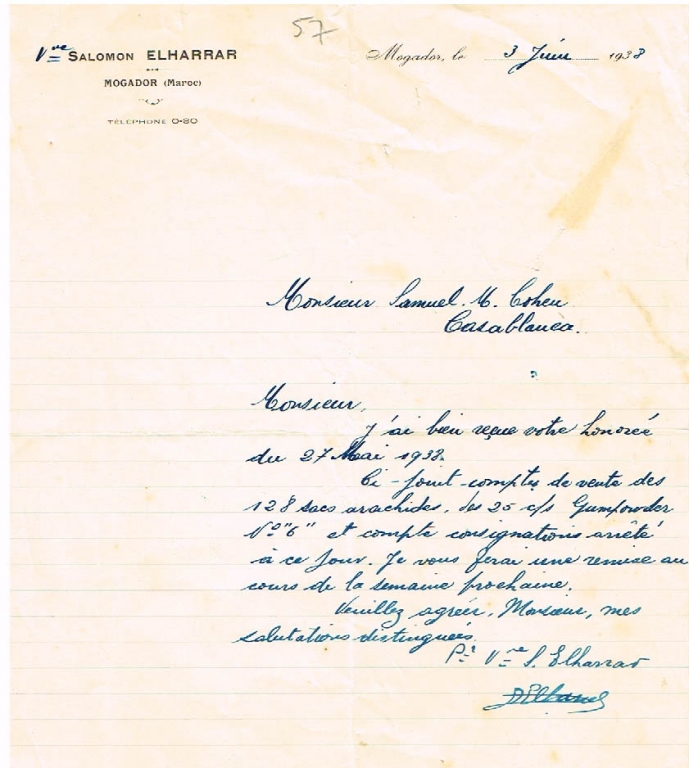 57
Vve SALOMON ELHARRAR
MOGADOR (Maroc)
TÉLÉPHONE 0-80
Mogador, le 3 Juin 1938
Monsieur Samuel. M. Cohen
Casablanca.
Monsieur,
J'ai bien reçue votre honorée
du 27 Mai 1938.
Ci-Joint-comptes de vente des
128 sacs arachides, des 25 c/s Gunpowder
No "6" et compte consignations arrêté
à ce Jour. Je vous ferai une remise au
cours de la semaine prochaine.
Veuillez agréer, Monsieur, mes
salutations distinguées.
Pr Vve S. Elharrar